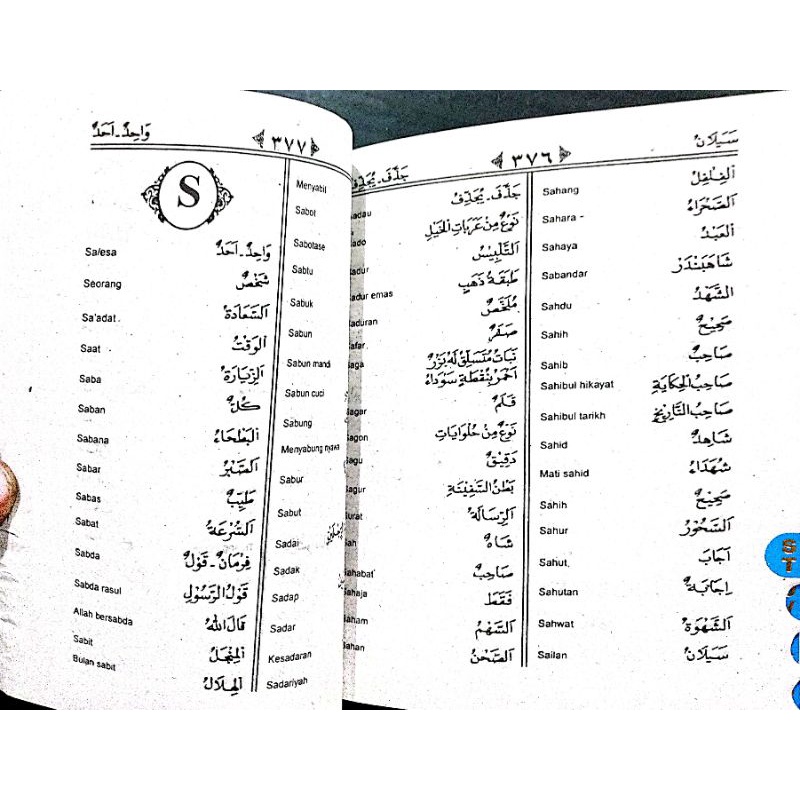 وَاحِدٌ - اَحَدٌ
٣٧٧
S
Sa/esa وَاحِدٌ - اَحَدٌ
Seorang شَخْصٌ
Sa'adat اَلسَّعَادَةُ
Saat اَلْوَقْتُ
Saba اَلزِّيَارَةُ
Saban كُلٌّ
Sabana اَلْبَطْحَاءُ
Sabar اَلصَّبْرُ
Sabas طَيِّبٌ
Sabat اَلسُّرْعَةُ
Sabda فِرْمَانٌ - قَوْلٌ
Sabda rasul قَوْلُ الرَّسُوْلِ
Allah bersabda قَالَ اللهُ
Sabit اَلْمِنْجَلُ
Bulan sabit اَلْهِلَالُ
Menyabit
Sabot
Sabotase
Sabtu
Sabuk
Sabun
Sabun mandi
Sabun cuci
Sabung
Menyabung nyawa
Sabur
Sabut
Sadai
Sadak
Sadap
Sadar
Kesadaran
Sadariyah
جَدَّفَ - يُجَدِّفُ
٣٧٦
سَيَلَانُ
adau جَدَّفَ - يُجَدِّفُ
ado نَوْعٌ مِنْ عَرَبَاتِ الْخَيْلِ
adur اَلتَّلْبِيْسُ
adur emas طَبَقَةُ ذَهَبٍ
aduran مُلَخَّصٌ
afar صَفَرٌ
aga نَبَاتٌ مُتَسَلِّقٌ لَهُ بَزْرٌ
اَحْمَرُ بِنُقْطَةٍ سَوْدَاءُ
agar قَلَمٌ
agon نَوْعٌ مِنْ حُلْوَايَاتٍ
agu دَقِيْقٌ
agur بَطْنُ السَّفِيْنَةِ
urat اَلرِّسَالَةُ
ah شَاهٌ
ahabat صَاحِبٌ
ahaja فَقَطْ
aham اَلسَّهْمُ
ahan اَلصَّحْنُ
Sahang اَلْفِلْفِلُ
Sahara - اَلصَّحْرَاءُ
Sahaya اَلْعَبْدُ
Sabandar شَاهْبَنْدَرْ
Sahdu اَلشَّهْدُ
Sahih صَحِيْحٌ
Sahib صَاحِبٌ
Sahibul hikayat صَاحِبُ الْحِكَايَةِ
Sahibul tarikh صَاحِبُ التَّارِيْخِ
Sahid شَاهِدٌ
Mati sahid شُهَدَاءُ
Sahih صَحِيْحٌ
Sahur اَلسَّحُوْرُ
Sahut, اَجَابَ
Sahutan اِجَابَةٌ
Sahwat اَلشَّهْوَةُ
Sailan سَيَلَانُ
ST